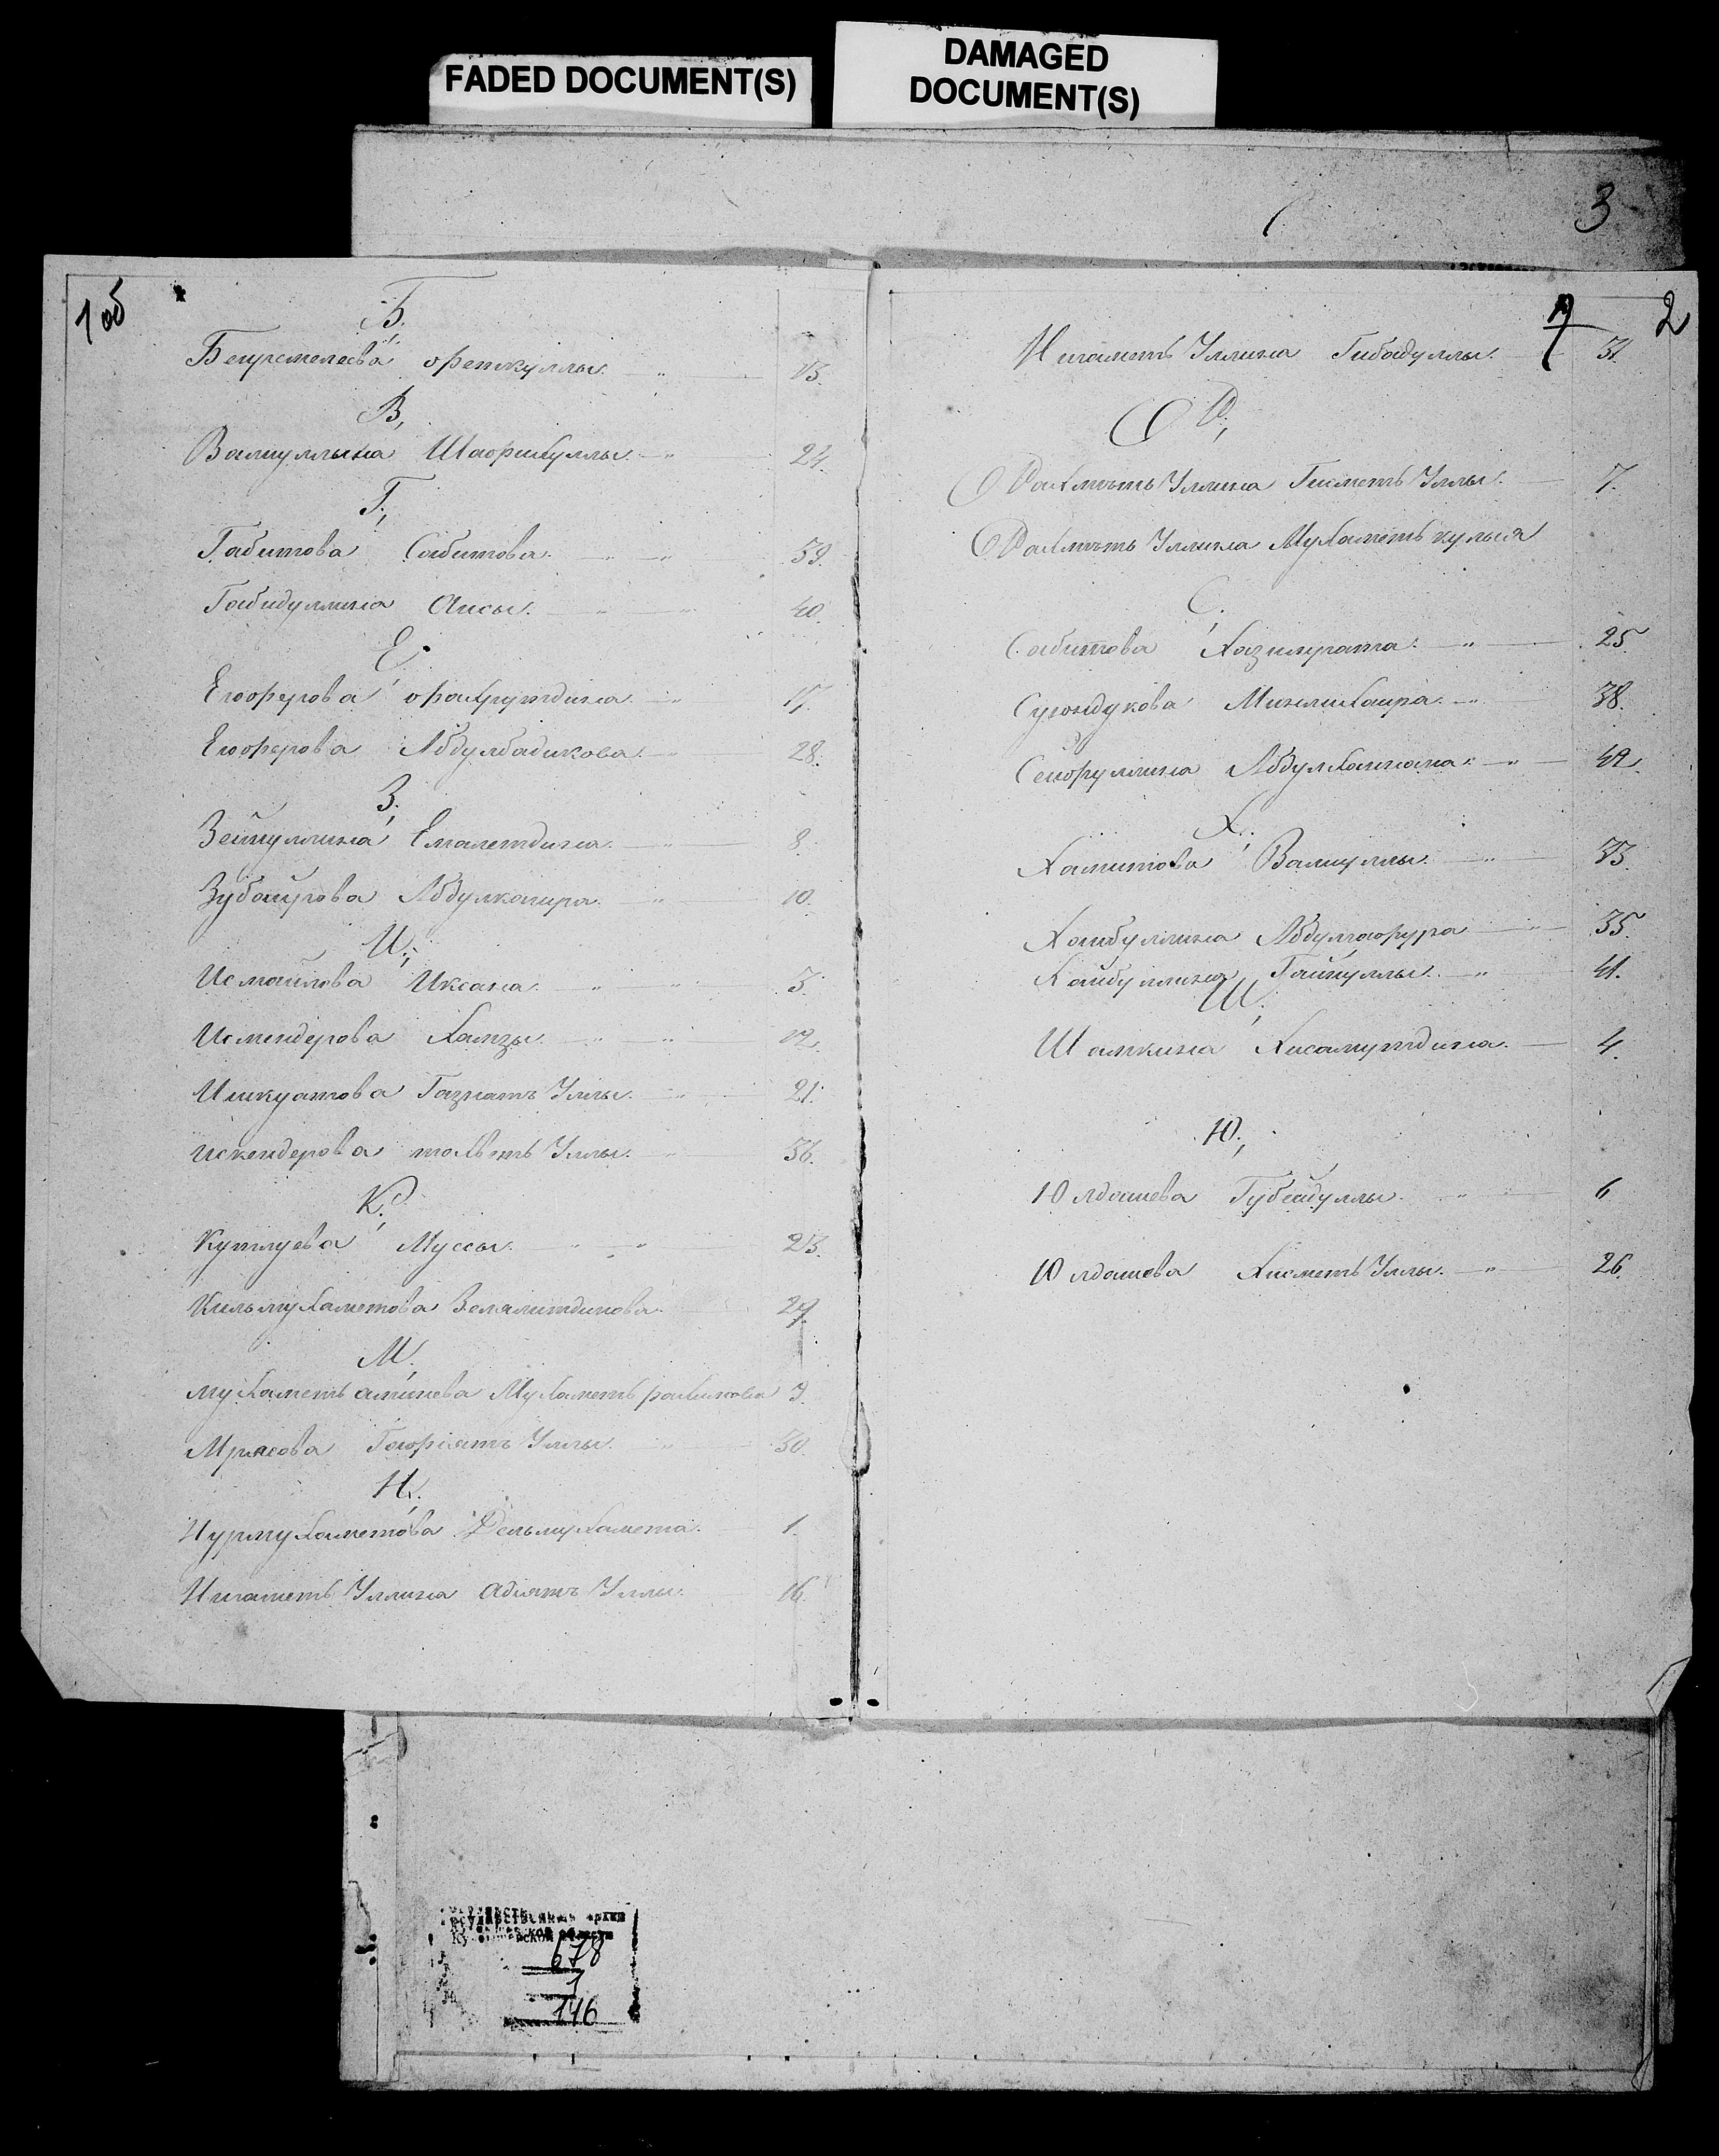 FADED DOCUMENT(S)
DAMAGED
DOCUMENT(S)
3
1 об
Б.
Бегуретелева Фреткуллы. 13.
В.
Валиуллина Шафикуллы. 24.
Г.
Габитова Сабитова. 39.
Габидуллина Аисы. 40.
Е.
Еюферова Фахрутдина. 17.
Еюферова Абдулбадикова. 28.
З.
Зейнуллина Емалетдина. 8.
Зубаирова Абдулкаира. 10.
И.
Исмаилова Иксана. 3.
Исмендерова Хамзы. 12.
Ишкуатова Газнатъ Уллы. 21.
Искендерова Уллы. 36.
К.
Кутлуева Муссы. 23.
Кильмухаметова Залялитдинова. 29.
М.
Мухаметь аминева Мухаметь рахимова 9.
Мрясова Гафіятъ Уллы. 30.
Н.
Нурмухаметова Дельмухамета. 1.
Нигаметь Уллина Адіятъ Уллы. 16.
2
Нигаметь Уллина Гибадуллы. 31.
Р.
Рахметь Уллина Гисметь Уллы. 7.
Рахметь Уллина Мухаметь кулыя
С.
Сабитова Хазимрата. 25.
Суюндукова Миниликаира. 38.
Сейфуллина Абдулханнана. 42.
Х.
Хамитова Валиуллы. 33.
Хаибуллина Абдулгафура 35.
Хаибуллина Гайнуллы. 41.
Ш.
Шамкина Хисамутдина. 4.
Ю.
Юлдашева Губейдуллы. 6
Юлдашева Хисметь Уллы. 26.
678
1
146